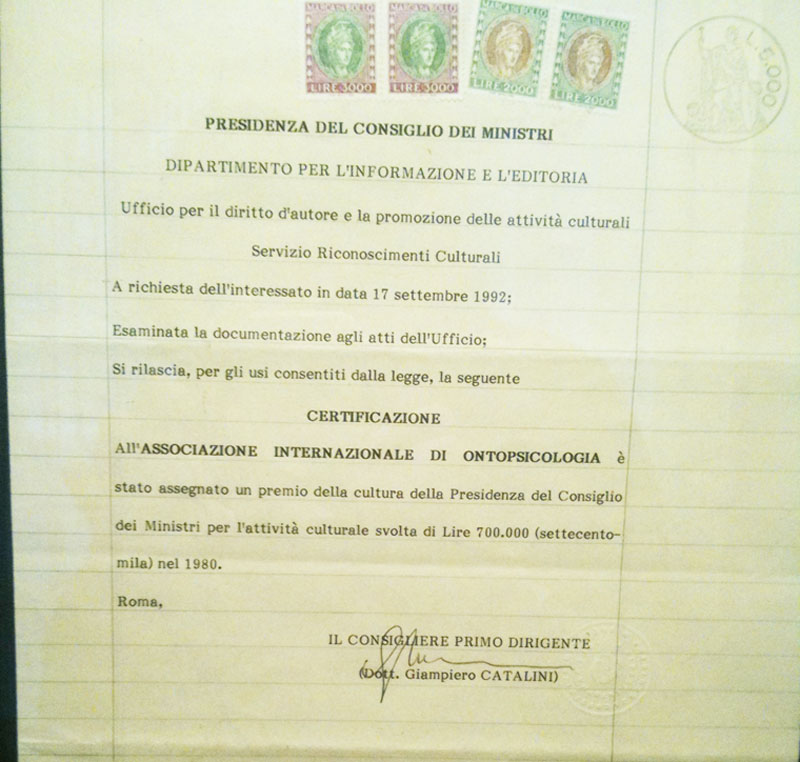 MARCA DA BOLLO MARCA DA BOLLO MARCA DA BOLLO MARCA DA BOLLO
LIRE 3000 LIRE 3000 LIRE 2000 LIRE 2000
L. 5000
PRESIDENZA DEL CONSIGLIO DEI MINISTRI
DIPARTIMENTO PER L'INFORMAZIONE E L'EDITORIA
Ufficio per il diritto d'autore e la promozione delle attività culturali
Servizio Riconoscimenti Culturali
A richiesta dell'interessato in data 17 settembre 1992;
Esaminata la documentazione agli atti dell'Ufficio;
Si rilascia, per gli usi consentiti dalla legge, la seguente
CERTIFICAZIONE
All'ASSOCIAZIONE INTERNAZIONALE DI ONTOPSICOLOGIA è
stato assegnato un premio della cultura della Presidenza del Consiglio
dei Ministri per l'attività culturale svolta di Lire 700.000 (settecento-
mila) nel 1980.
Roma,
IL CONSIGLIERE PRIMO DIRIGENTE
(Dott. Giampiero CATALINI)